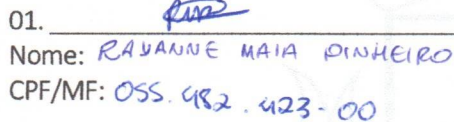 01.
Nome: RAYANNE MAIA PINHEIRO
CPF/MF: 055.482.423-00